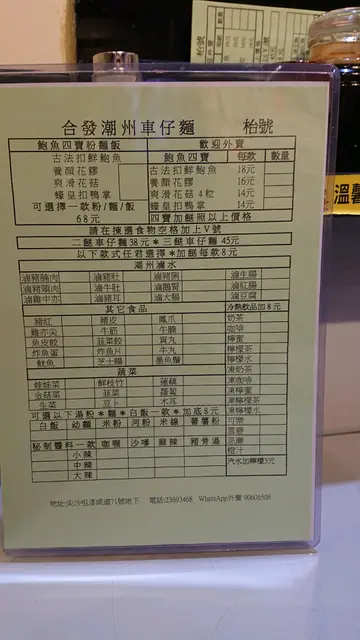 合發潮州車仔麵 枱號
鮑魚四寶粉麵飯 歡迎外賣
古法扣鮮鮑魚 鮑魚四寶 每款 數量
養顏花膠 古法扣鮮鮑魚 18元
爽滑花菇 養顏花膠 16元
蠔皇扣鴨掌 爽滑花菇 4粒 14元
可選擇一款粉/麵/飯 蠔皇扣鴨掌 14元
68元 四寶加餸照以上價格
請在揀選食物空格加上V號
二餸車仔麵38元*三餸車仔麵 45元
以下款式任君選擇*加餸每款8元
潮州滷水
滷豬腩肉 滷豬肚 滷生腸
滷豬頸肉 滷牛肚 滷鵝腎 滷紅腸
滷雞中亦 滷豬耳 滷大腸 滷豆腐
其它食品 冷熱飲品加8元
豬紅 豬皮 鳳爪 奶茶
雞亦尖 牛筋 牛腩 咖啡
魚皮餃 韮菜餃 貢丸 檸蜜
炸魚蛋 炸魚片 牛丸 檸檬茶
魷魚 芝士腸 墨魚丸 檸檬水
蔬菜 凍奶茶
娃娃菜 鮮枝竹 蓮藕 凍咖啡
金菇菜 韮菜 蘿蔔 凍檸蜜
生菜 豆卜 木耳 凍檸檬茶
可選以下湯粉*麵*白飯一款*加底6元 凍檸檬水
白飯 幼麵 米粉 河粉 米線 蕃薯粉 可樂
雪碧
秘制醬料一款 咖喱 沙嗲 麻辣 豬骨湯 忌廉
小辣 橙汁
中辣 汽水加檸檬3元
大辣
地址:尖沙咀漆咸道71號地下 電話:23693468 WhatsApp外賣 90606508
溫馨